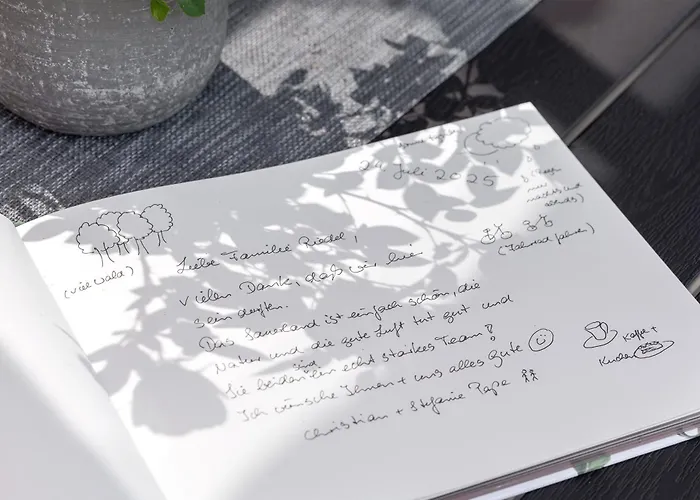 24. Juli 2025
(Regen
nur
nachts und
abends)
(viel Wald)
(Fahrrad fahren)
Liebe Familie Riedel,
Vielen Dank, daß wir hier
sein durften.
Das Sauerland ist einfach schön, die
Natur und die gute Luft tut gut und
Sie beiden sind ein echt starkes Team!
Ich wünsche Ihnen + uns alles Gute
Christian + Stefanie Pape
Kaffee +
Kuchen